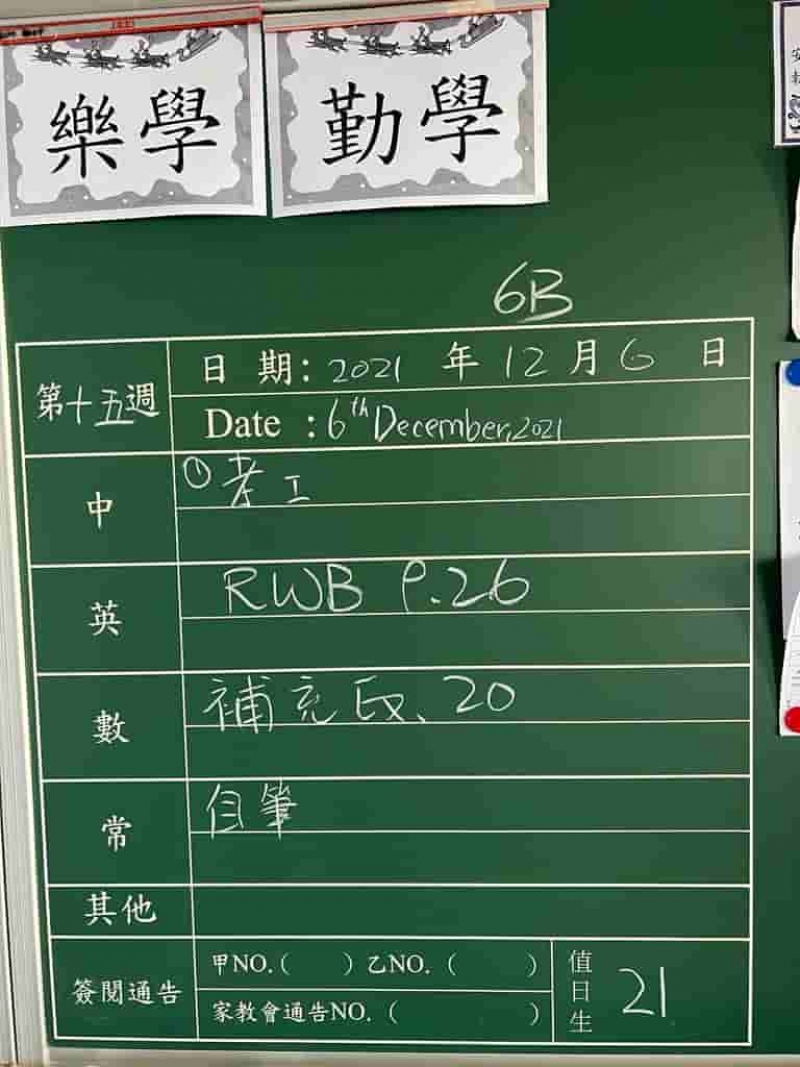 樂學
勤學
6B
第十五週
日 期：2021 年 12 月 6 日
Date : 6th December, 2021
中
① 考工
英
RWB P.26
數
補充 Ex. 20
常
自筆
其他
簽閱通告
甲NO.( ) 乙NO. ( )
家教會通告NO. ( )
值日生
21